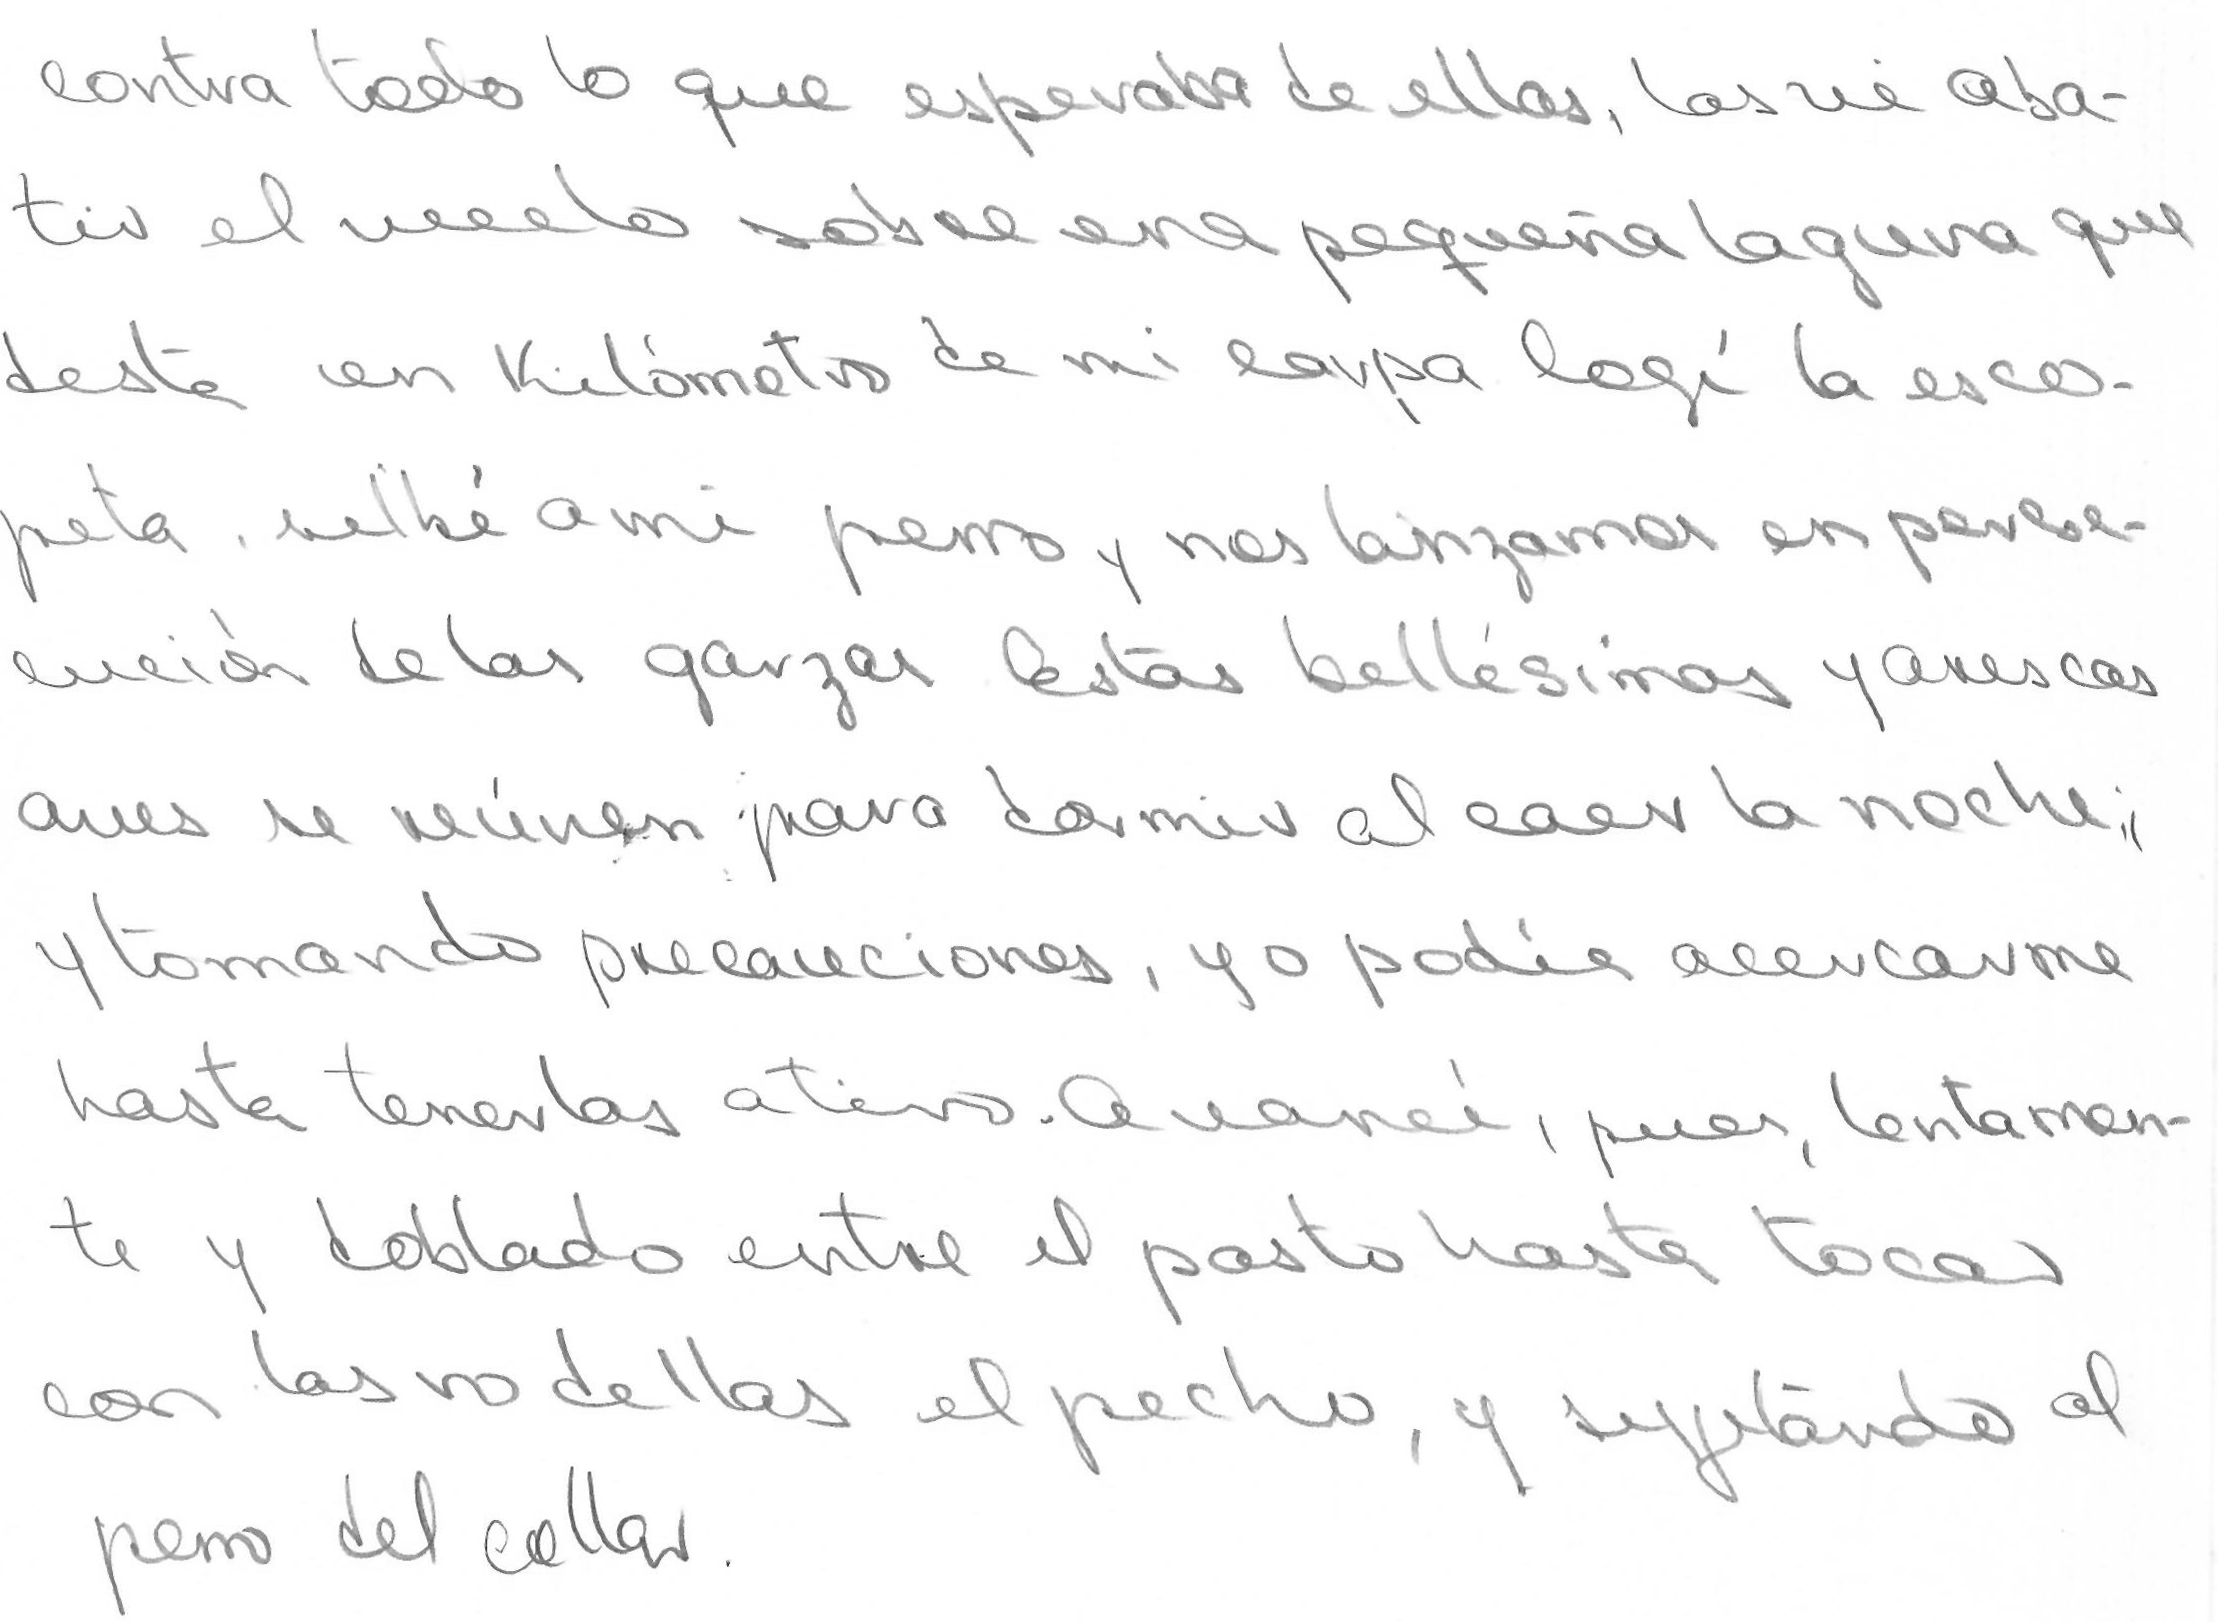 contra todo lo que esperaba de ellas, las vi aba-
tir el vuelo sobre una pequeña laguna que
desta un kilómetro de mi carpa Cogí la esco-
peta, silbé a mi perro y nos lanzamos en perse-
cución de las garzas Estas bellésimas y ariscas
aves se reúnen para dormir al caer la noche;
y tomando precauciones, yo podía acercarme
hasta tenerlas a tiro. Avancé, pues, lentamen-
te y doblado entre el pasto hasta tocar
con las rodellas el pecho, y sujetándo al
perro del collar.